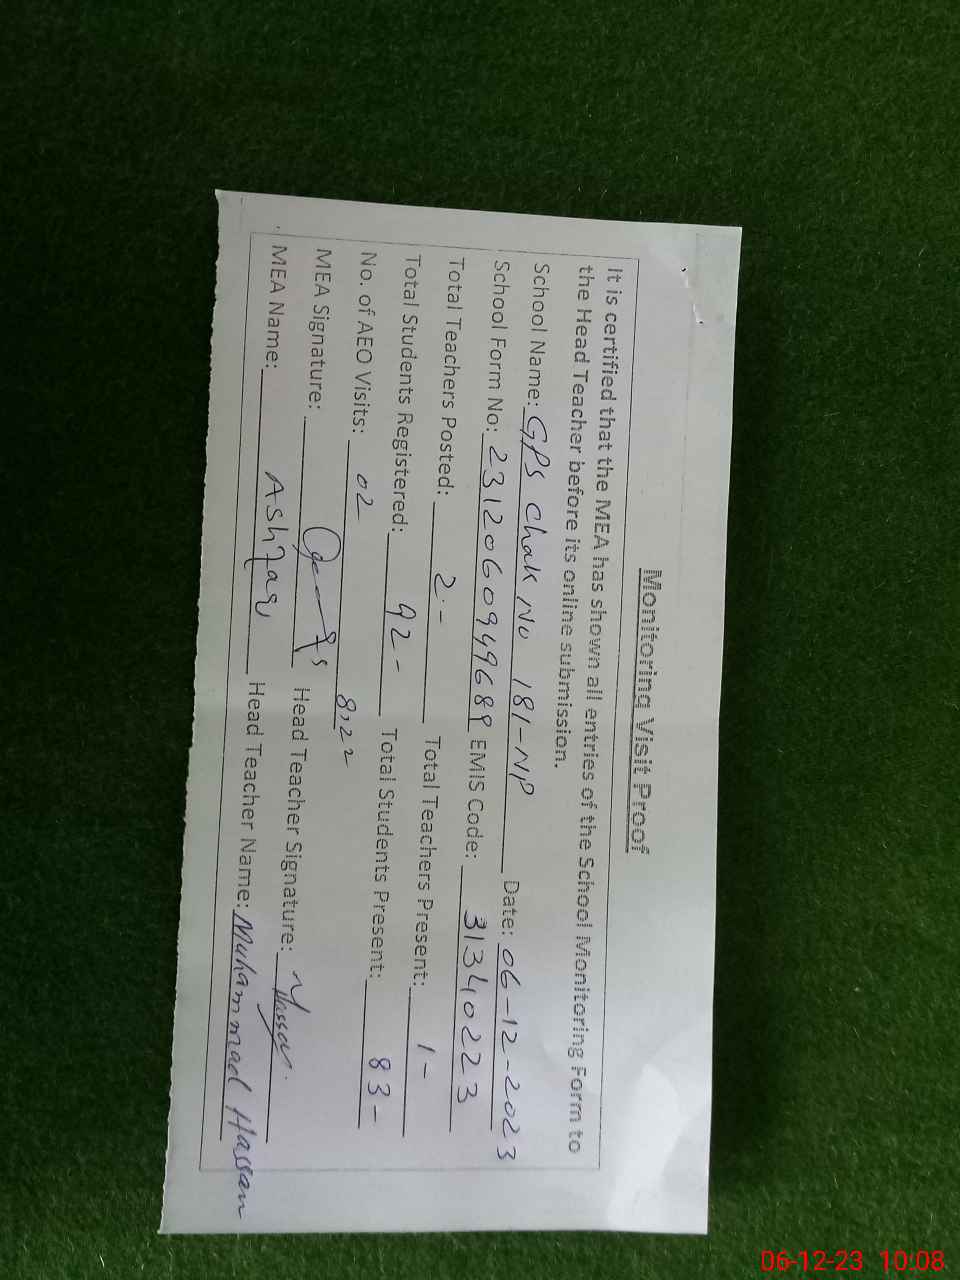 Monitoring Visit Proof
It is certified that the MEA has shown all entries of the School Monitoring Form to
the Head Teacher before its online submission.
School Name: GPS Chak No 181-NP Date: 06-12-2023
School Form No: 2312060949689 EMIS Code: 31340223
Total Teachers Posted: 2- Total Teachers Present: 1-
Total Students Registered: 92- Total Students Present: 83-
No. of AEO Visits: 02
MEA Signature: Head Teacher Signature: Hassan
MEA Name: Ashfaq Head Teacher Name: Muhammad Hassan
06-12-23 10:08